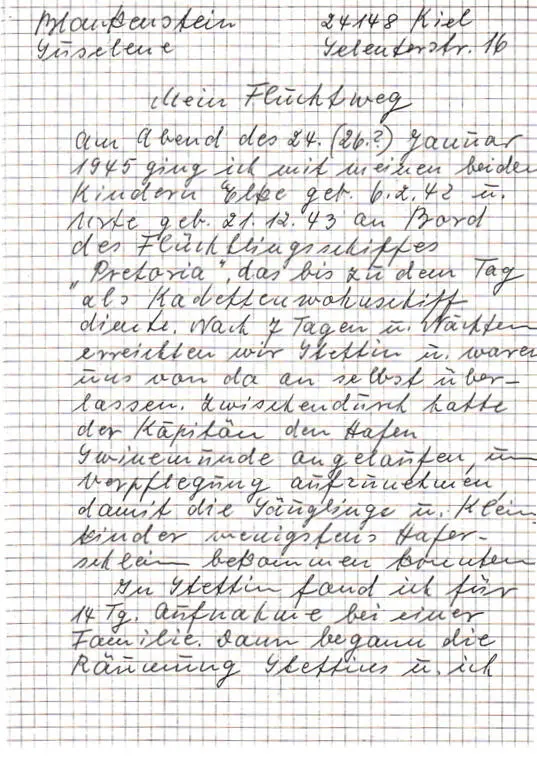 Blankenstein 24148 Kiel
Guselene Selenterstr. 16
Mein Fluchtweg
Am Abend des 24. (26.?) Januar
1945 ging ich mit meinen beiden
Kindern Elke geb. 6.2.42 u.
Urte geb. 21.12.43 an Bord
des Flüchtlingsschiffes
"Pretoria", das bis zu dem Tag
als Kadettenwohnschiff
diente. Nach 7 Tagen u. Nächten
erreichten wir Stettin u. waren
uns von da an selbst über-
lassen. Zwischendurch hatte
der Kapitän den Hafen
Swinemünde angelaufen, um
Verpflegung aufzunehmen
damit die Säuglinge u. Klein
kinder wenigstens Hafer-
schleim bekommen konnten
In Stettin fand ich für
14 Tg. Aufnahme bei einer
Familie. Dann begann die
Räumung Stettins u. ich